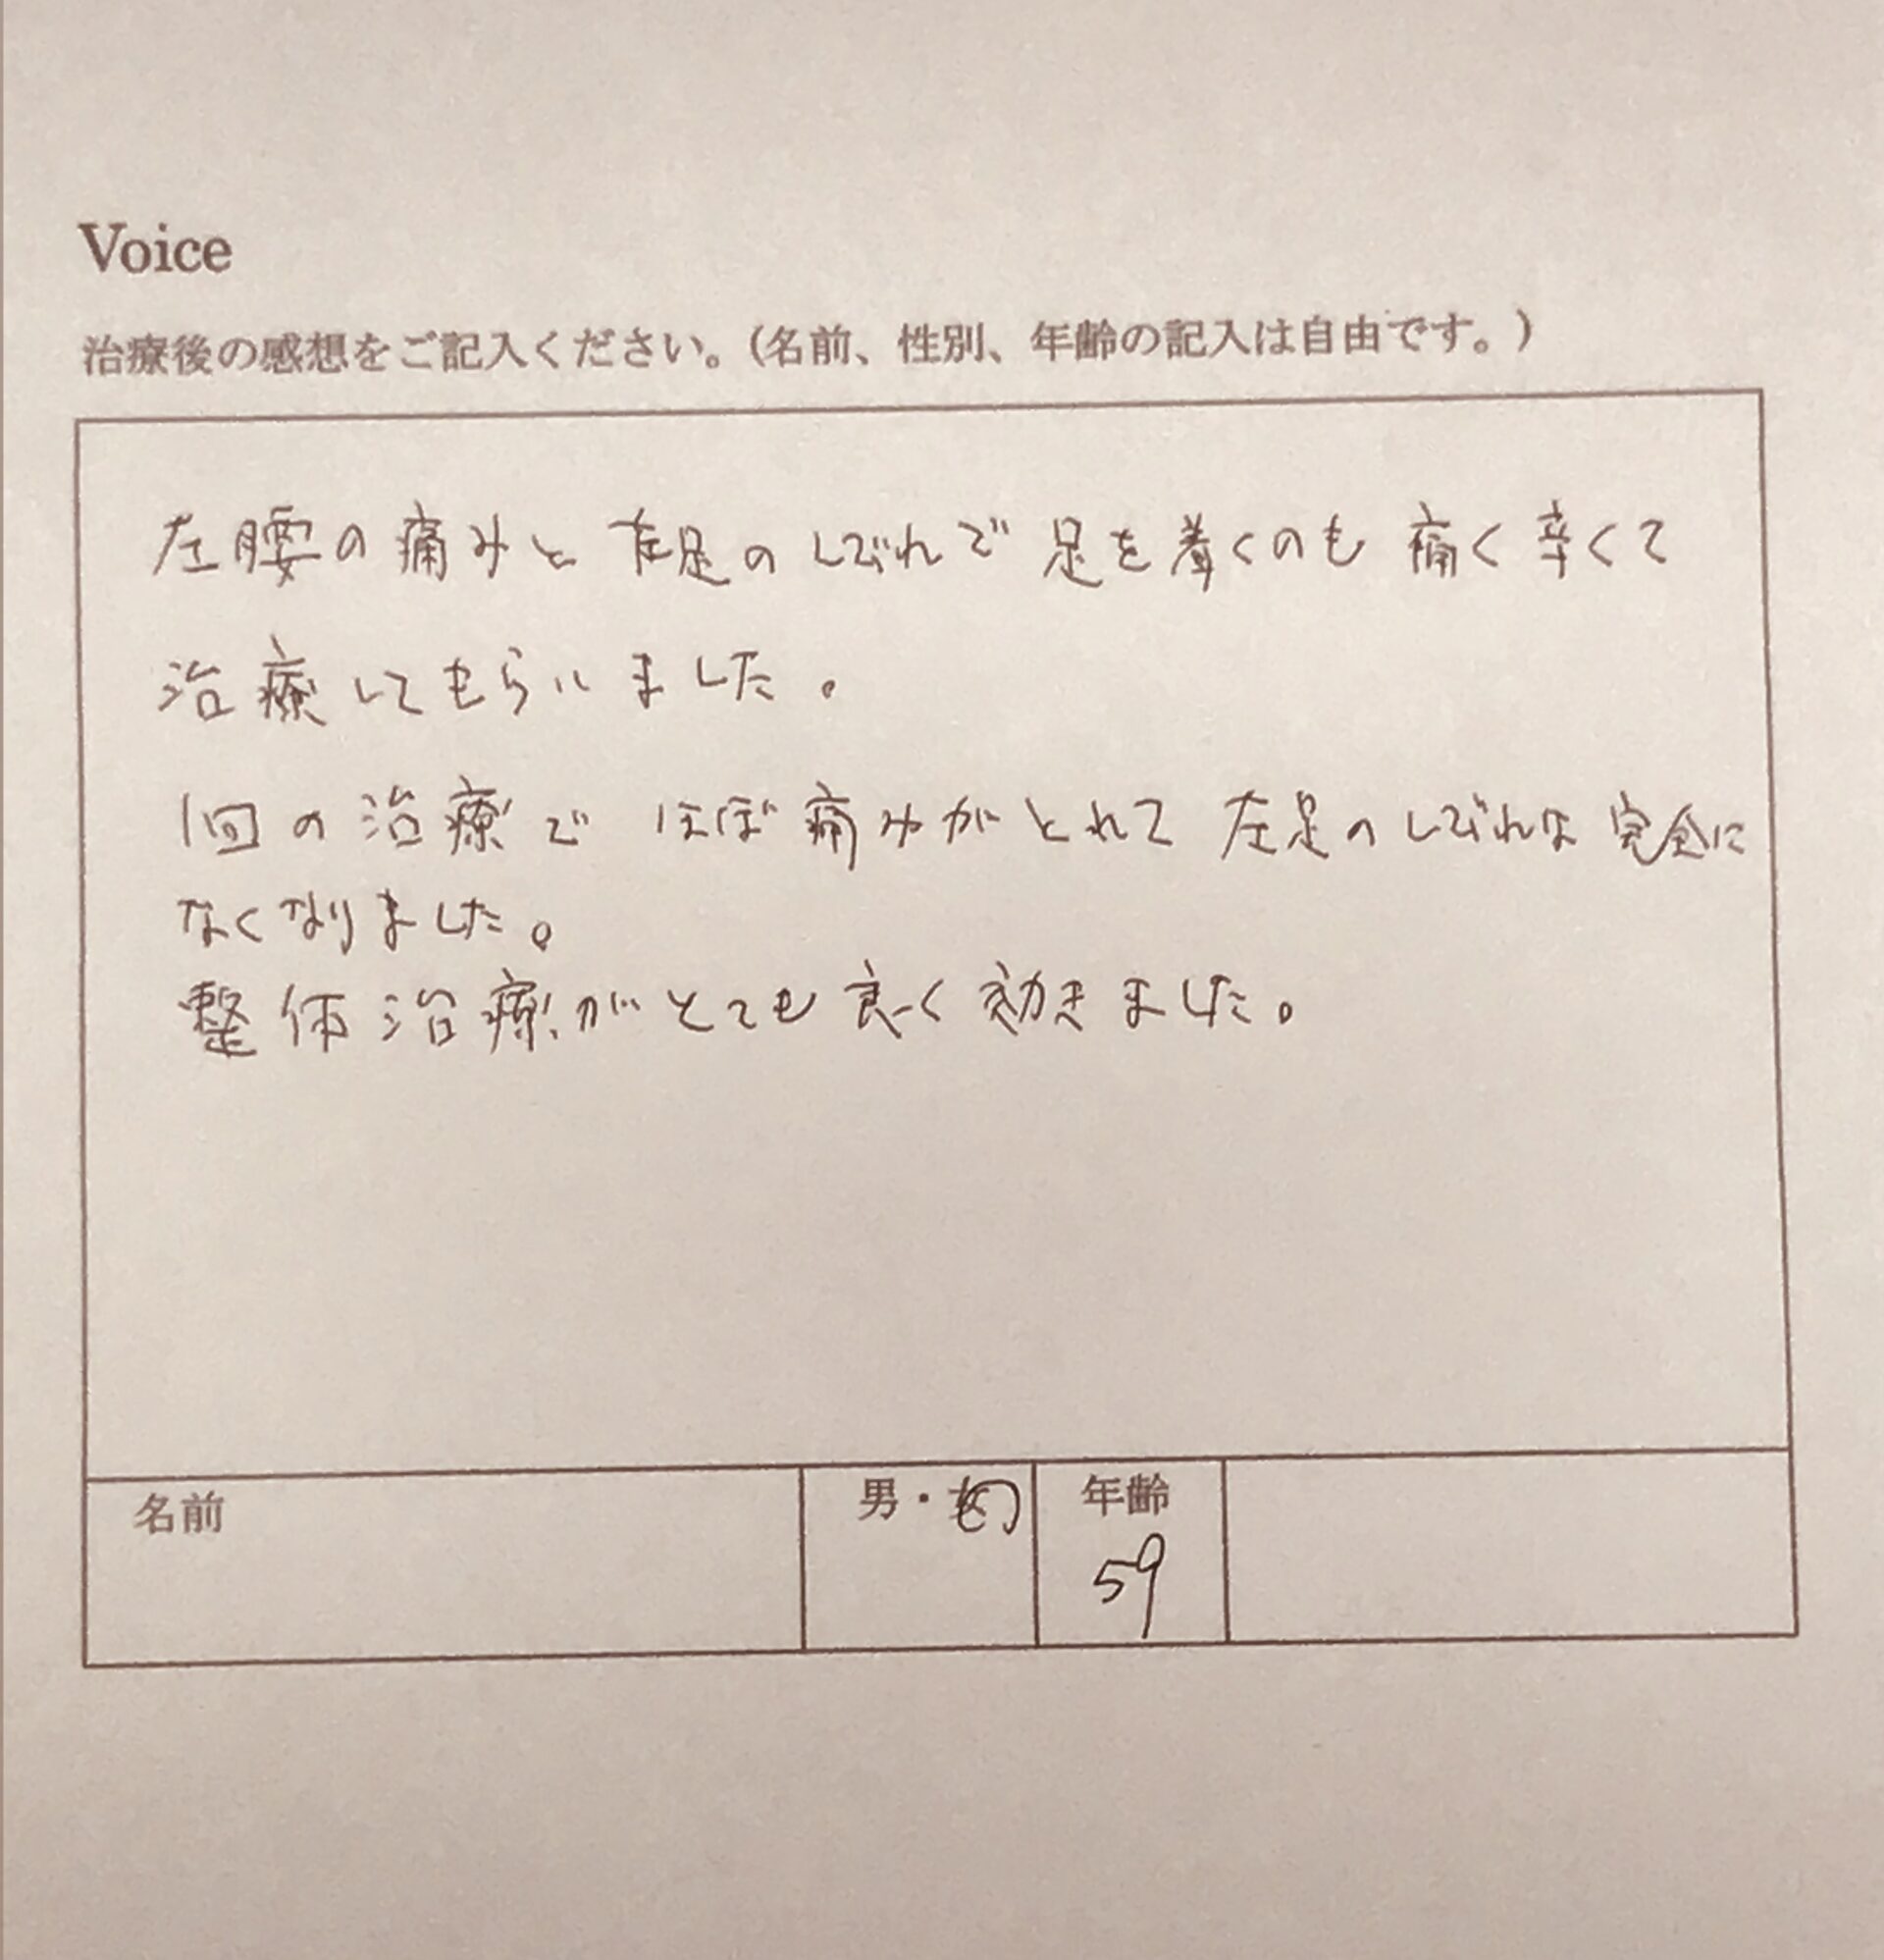 Voice
治療後の感想をご記入ください。(名前、性別、年齢の記入は自由です。)
左腰の痛みと左足のしびれで足を着くのも痛く辛くて
治療してもらいました。
1回の治療でほぼ痛みがとれて左足のしびれは完全に
なくなりました。
整体治療がとても良く効きました。
名前 男・女 年齢
59